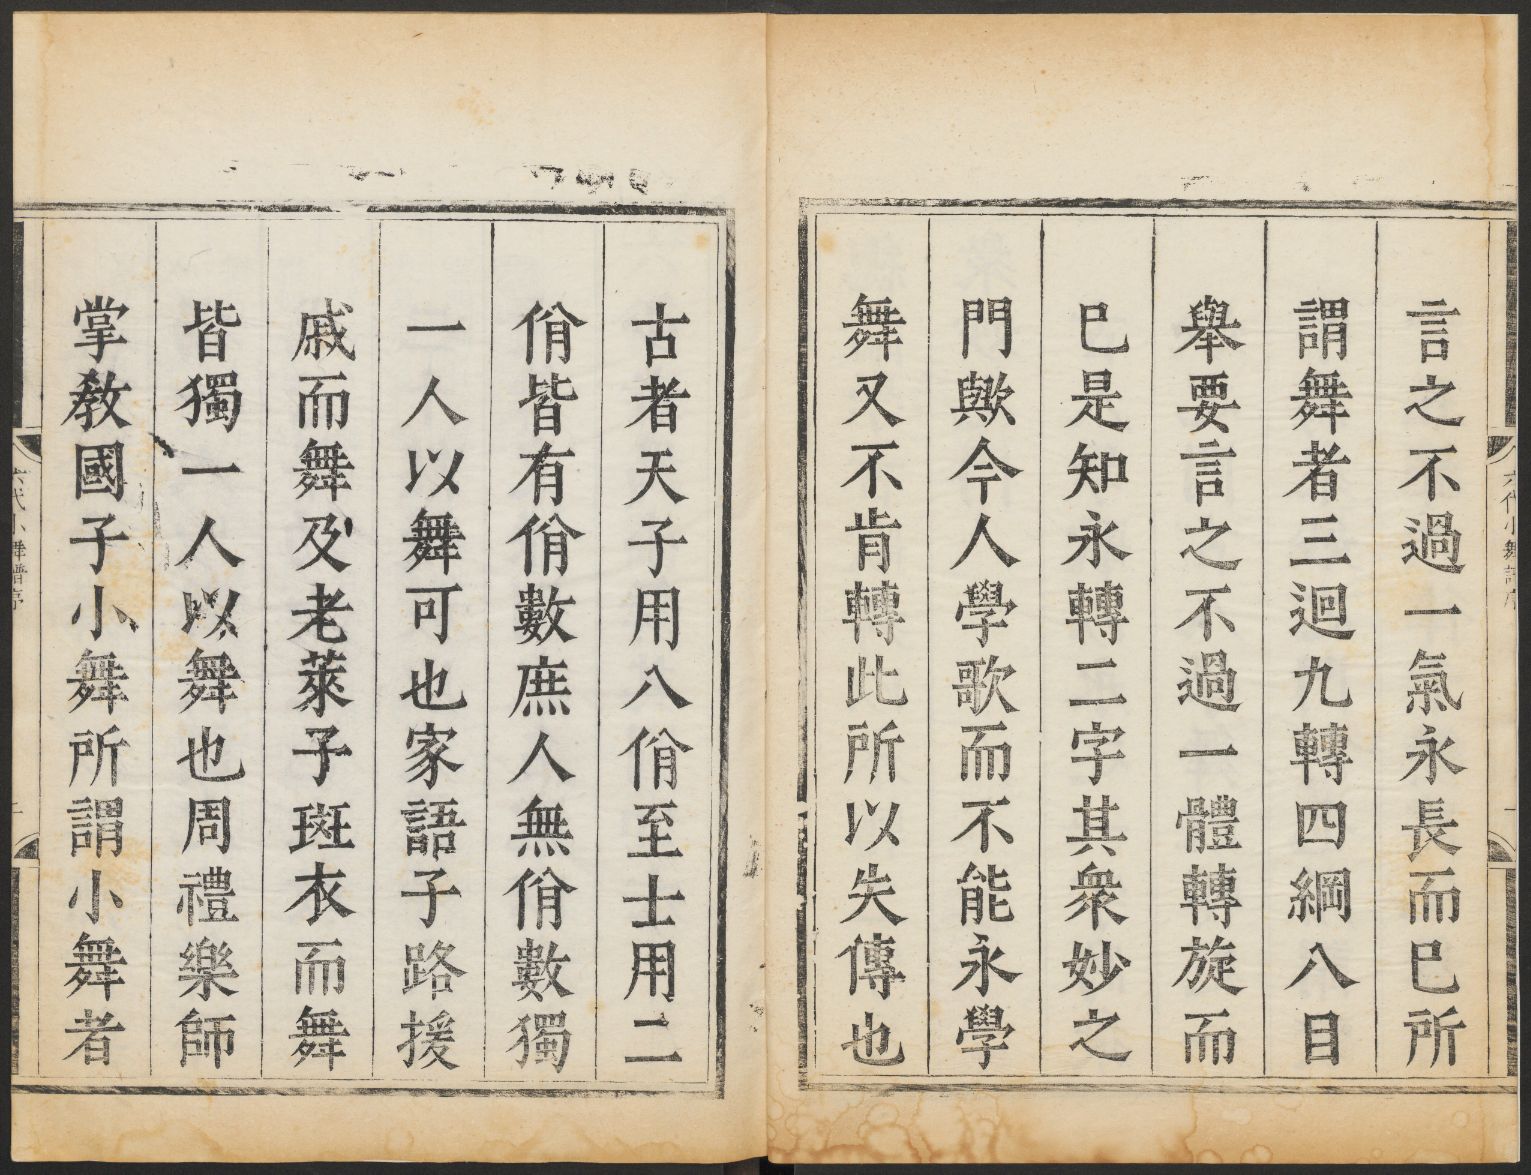 言之不過一氣永長而巳所
謂舞者三迴九轉四綱八目
舉要言之不過一體轉旋而
巳是知永轉二字其衆妙之
門歟今人學歌而不能永學
舞又不肯轉此所以失傳也
六代小舞譜序
古者天子用八佾至士用二
佾皆有佾數庶人無佾數獨
一人以舞可也家語子路援
戚而舞及老萊子斑衣而舞
皆獨一人以舞也周禮樂師
掌敎國子小舞所謂小舞者
六代小舞譜序